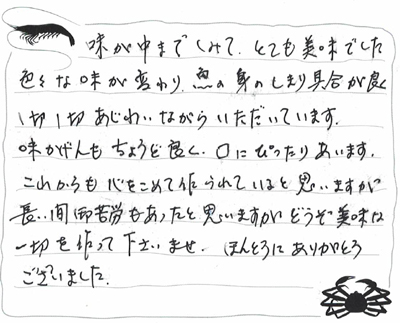 味が中までしみて、とても美味でした
色々な味が変わり、魚の身のしまり具合が良く
1切1切あじわいながらいただいています。
味かげんもちょうど良く、口にぴったりあいます。
これからも心をこめて作られていると思いますが
長い間御苦労もあったと思いますがどうぞ美味な
一切を作って下さいませ、ほんとうにありがとう
ございました。